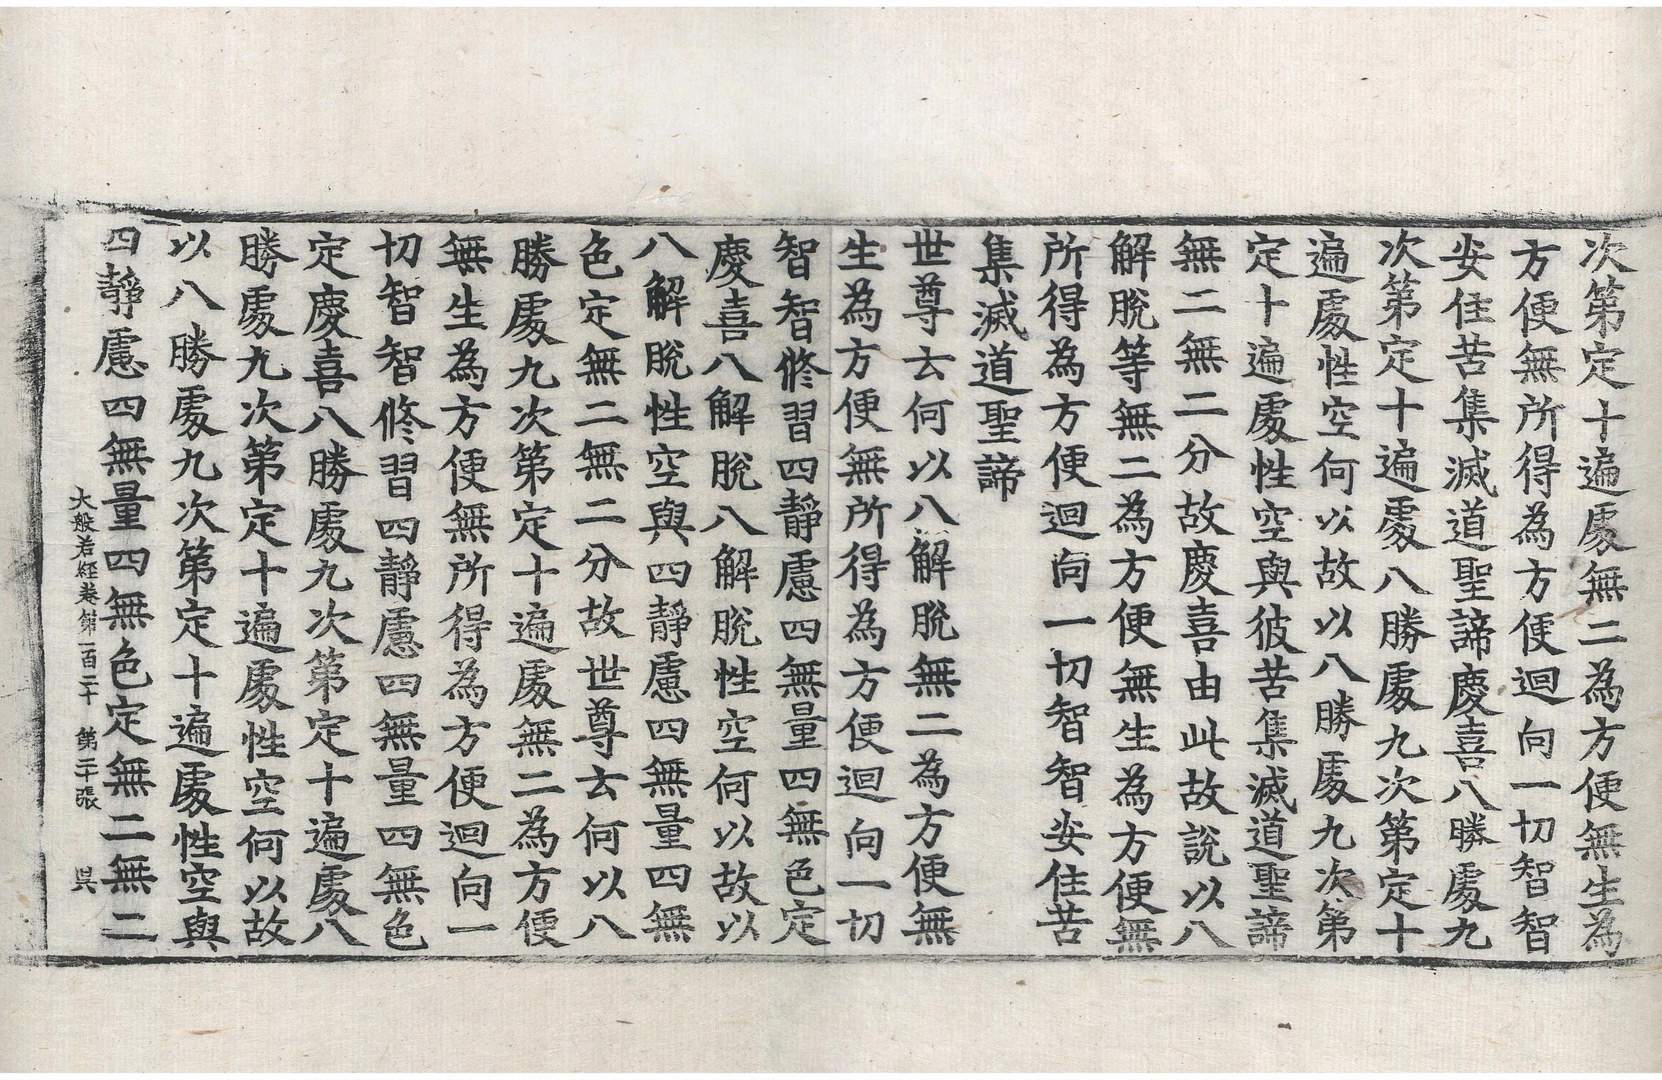 次第定十遍處無二為方便無生為
方便無所得為方便迴向一切智智
安住苦集滅道聖諦慶喜八勝處九
次第定十遍處八勝處九次第定十
遍處性空何以故以八勝處九次第
定十遍處性空與彼苦集滅道聖諦
無二無二分故慶喜由此故說以八
解脫等無二為方便無生為方便無
所得為方便迴向一切智智安住苦
集滅道聖諦
世尊云何以八解脫無二為方便無
生為方便無所得為方便迴向一切
智智修習四靜慮四無量四無色定
慶喜八解脫八解脫性空何以故以
八解脫性空與四靜慮四無量四無
色定無二無二分故世尊云何以八
勝處九次第定十遍處無二為方便
無生為方便無所得為方便迴向一
切智智修習四靜慮四無量四無色
定慶喜八勝處九次第定十遍處八
勝處九次第定十遍處性空何以故
以八勝處九次第定十遍處性空與
四靜慮四無量四無色定無二無二
大般若經卷第一百二十 第二十張 吳